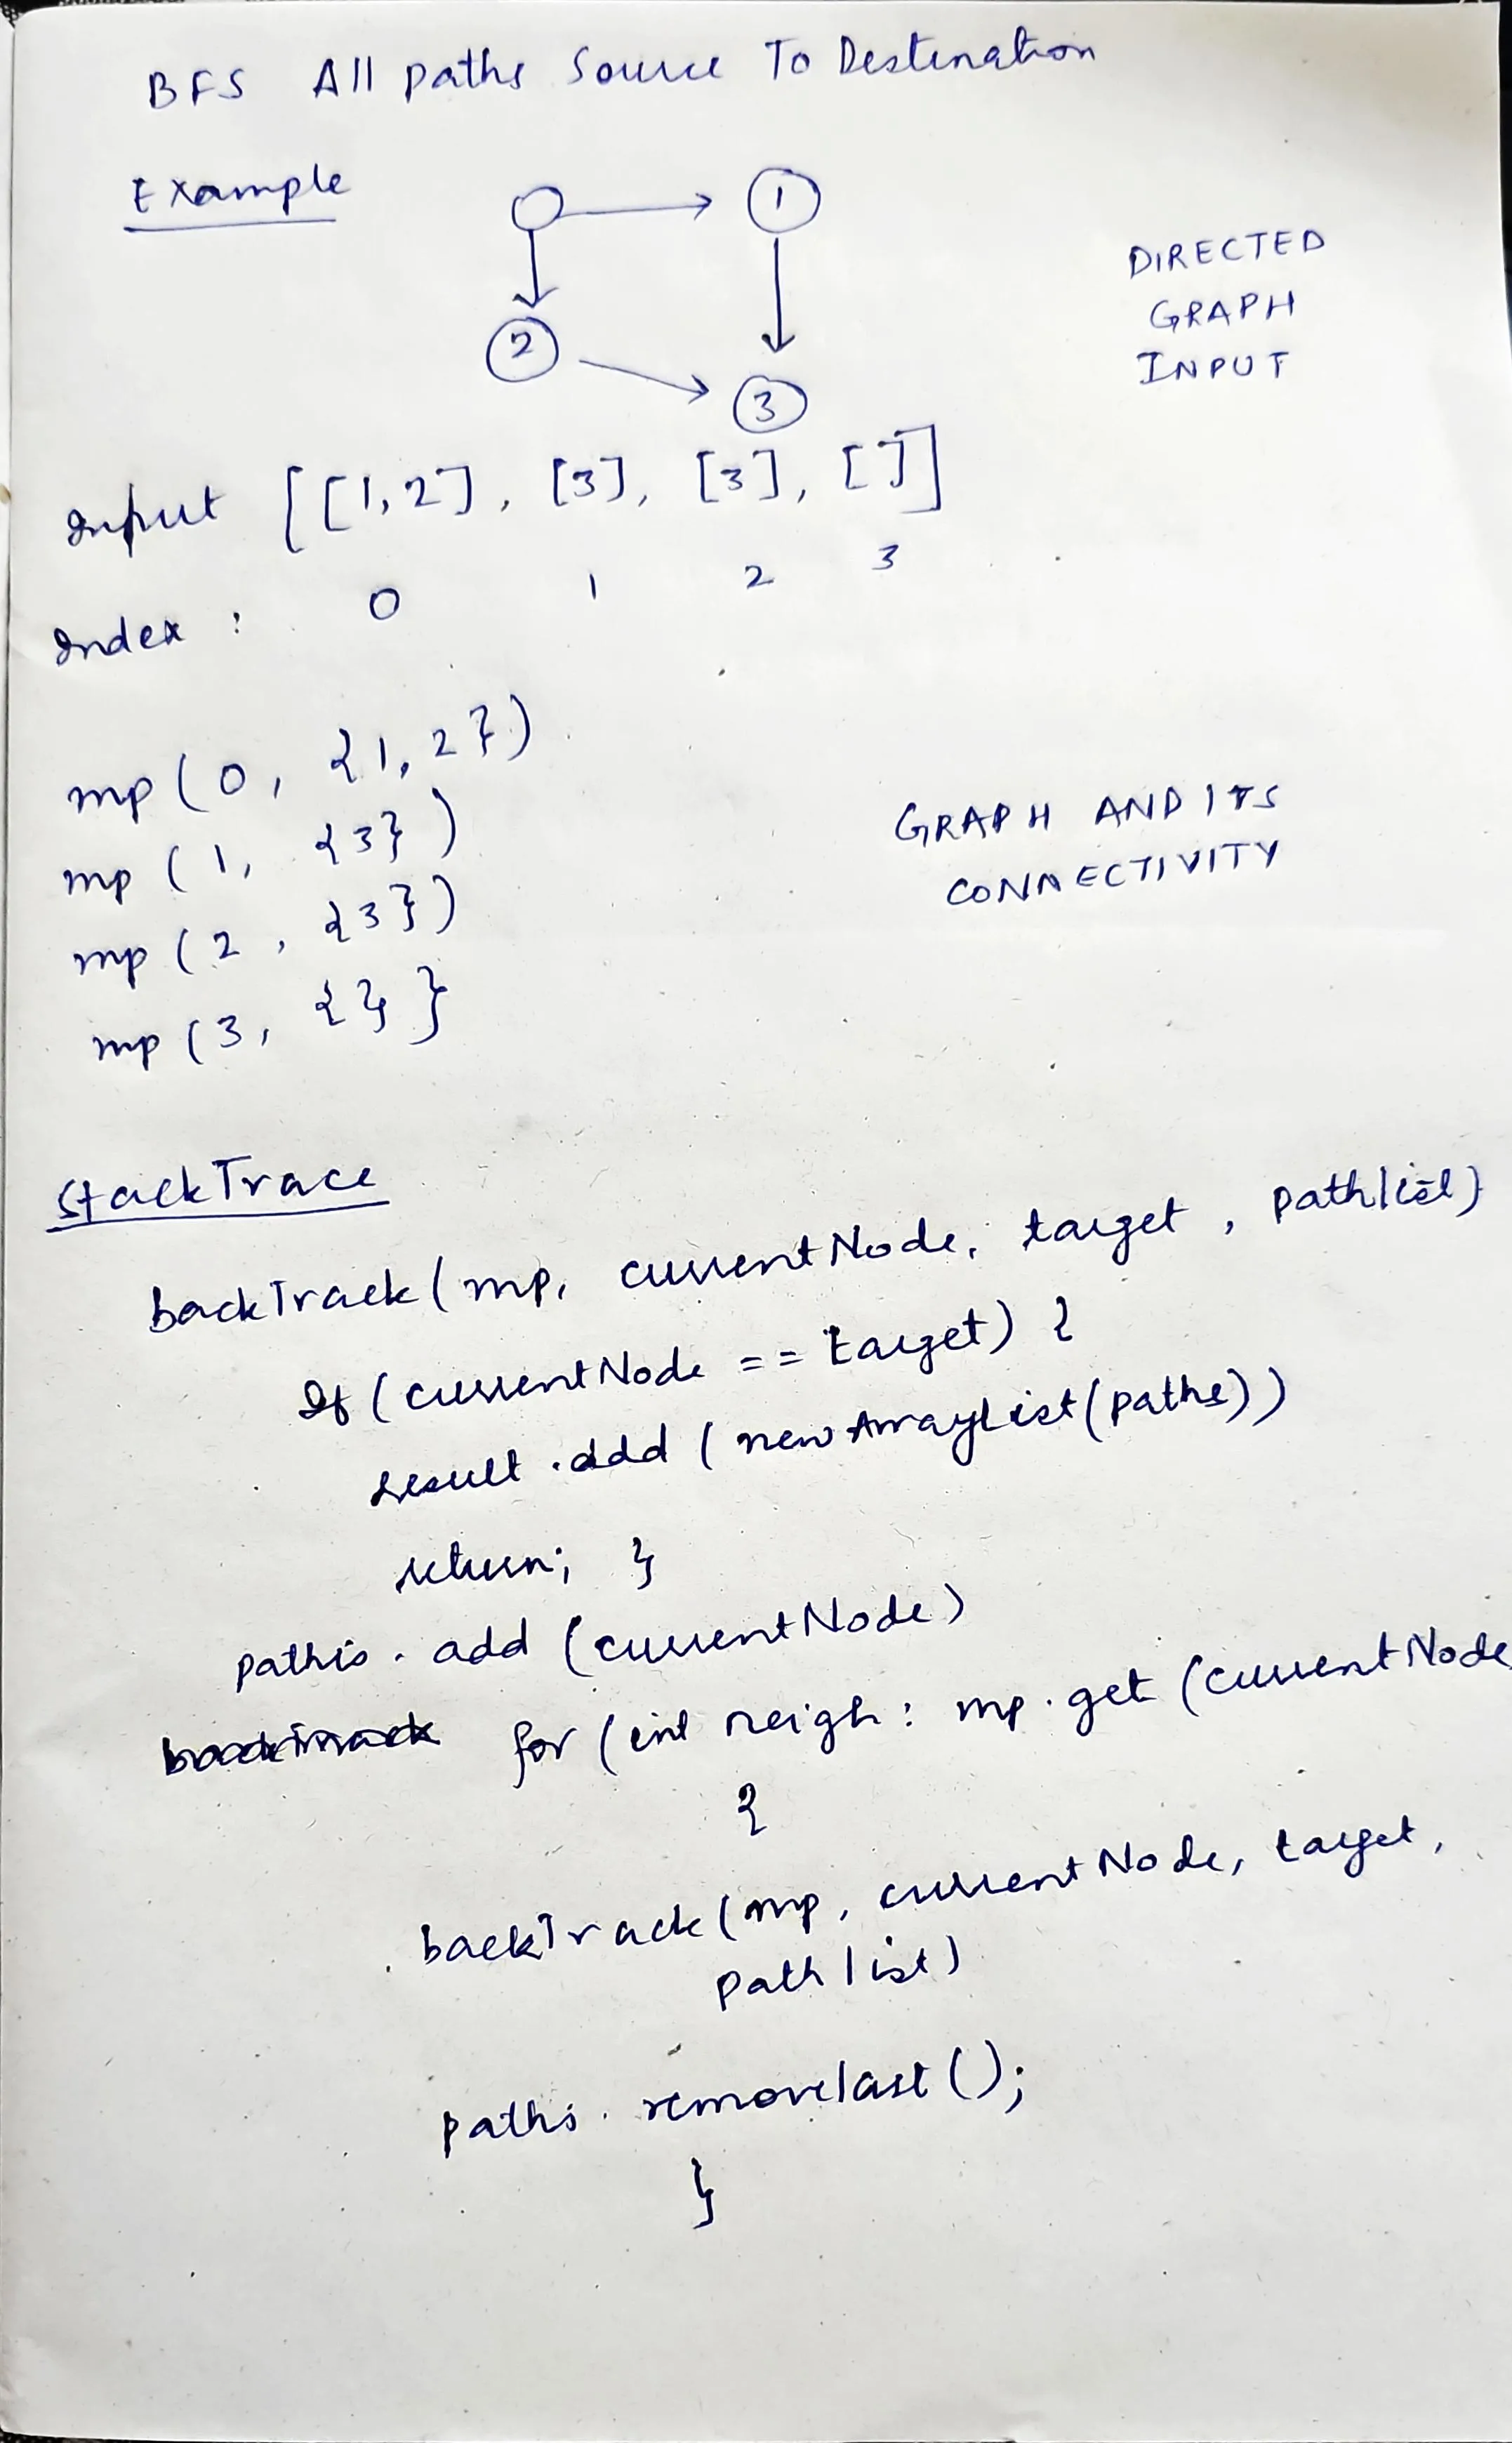 BFS All paths Source To Destination
Example
1
2
3
DIRECTED
GRAPH
INPUT
Input [[1,2], [3], [3], []]
Index : 0 1 2 3
mp (0, {1,2})
mp (1, {3})
mp (2, {3})
mp (3, {}}
GRAPH AND ITS
CONNECTIVITY
StackTrace
backTrack (mp, currentNode, target, pathlist)
If (currentNode == target) {
result.add (new ArrayList(paths))
return; }
paths.add (currentNode)
for (int neigh: mp.get (currentNode
{
backTrack (mp, currentNode, target,
pathlist)
paths.removelast();
}